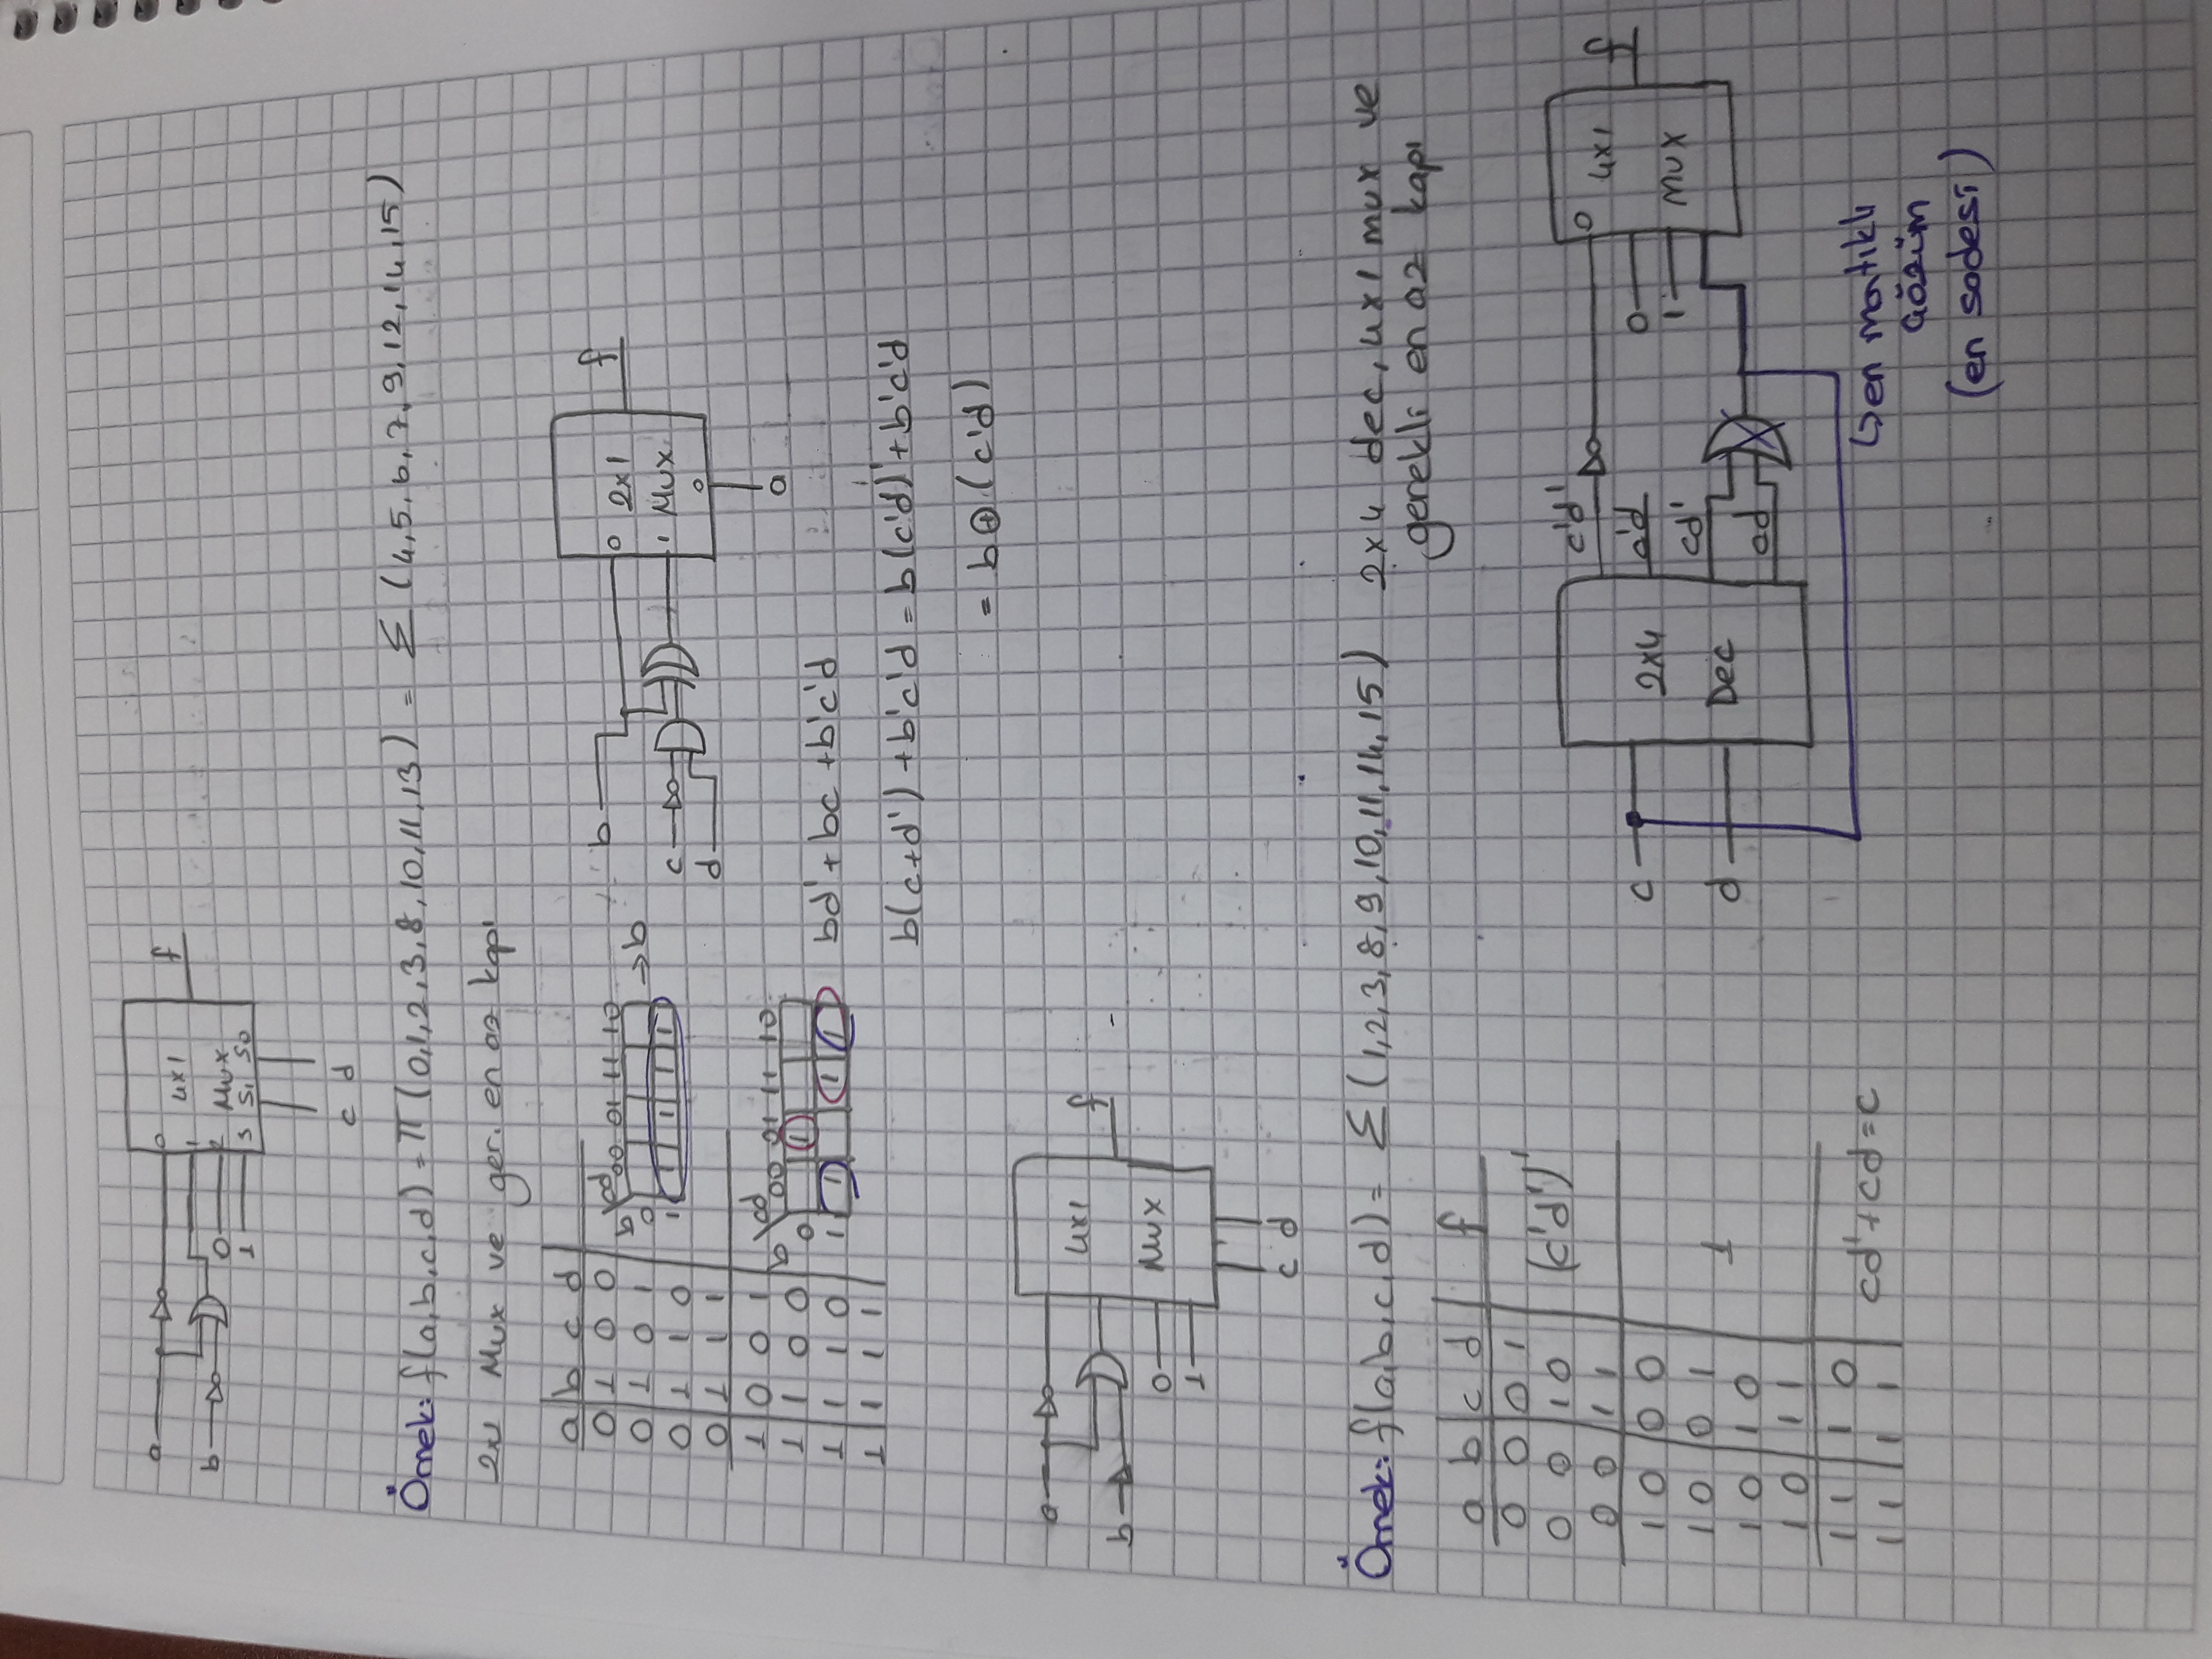 a
b
0
1
0
1
2
3
4x1
Mux
S1 S0
f
c d
Örnek: f(a,b,c,d) = π (0,1,2,3,8,10,11,13) = Σ (4,5,6,7,9,12,14,15)
2x1 Mux ve ger. en az kapı
a b c d
0 1 0 0
0 1 0 1
0 1 1 0
0 1 1 1
1 0 0 1
1 1 0 0
1 1 1 0
1 1 1 1
b\cd 00 01 11 10
0
1 1 1 1 1
→b
b\cd 00 01 11 10
0 1
1 1 1 1
b
c
d
0 2x1
1 Mux
0
f
a
bd' + bc + b'c'd
b(c+d') + b'c'd = b(c'd)' + b'c'd
= b⊕(c'd)
a
b
0
1
4x1
Mux
f
c d
Örnek: f(a,b,c,d) = Σ (1,2,3,8,9,10,11,14,15) 2x4 dec, 4x1 mux ve
gerekli en az kapı
a b c d f
0 0 0 1
0 0 1 0 (c'd')'
0 0 1 1
1 0 0 0
1 0 0 1
1 0 1 0 1
1 0 1 1
1 1 1 0
1 1 1 1 cd'+cd=c
c
d
2x4
Dec
c'd'
c'd
cd'
cd
0
0
1
4x1
Mux
f
↳en mantıklı
çözüm
(en sadesi)